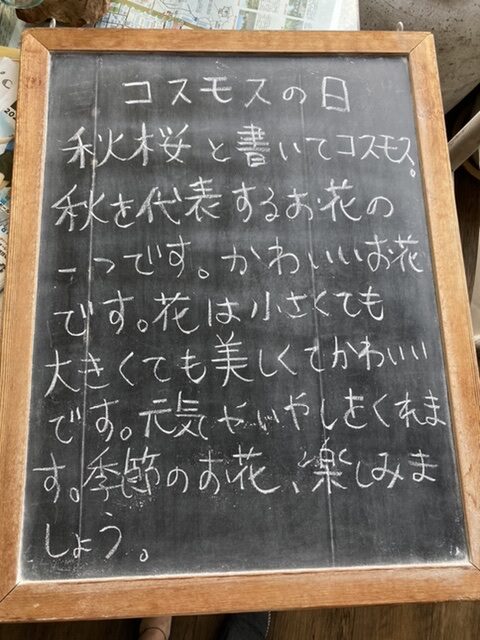 コスモスの日
秋桜と書いてコスモス。
秋を代表するお花の
一つです。かわいいお花
です。花は小さくても
大きくても美しくてかわいい
です。元気やいやしをくれま
す。季節のお花、楽しみま
しょう。